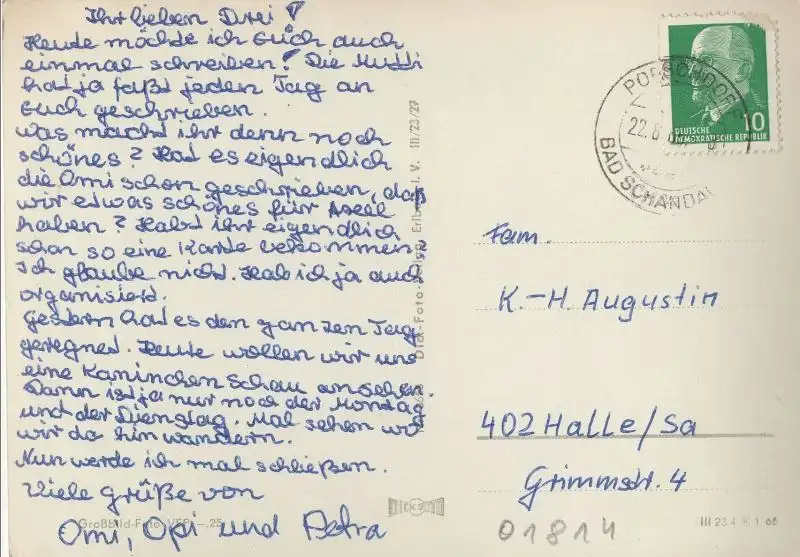 Ihr lieben Drei!
Heute möchte ich Euch auch
einmal schreiben! Die Mutti
hat ja faßt jeden Tag an
Euch geschrieben.
Was macht ihr denn noch
schönes? Hat es eigendlich
die Omi schon geschrieben, daß
wir etwas schönes für
haben? Habt ihr eigendlich
schon so eine Karte bekommen
Ich glaube nicht. Hab ich ja auch
organisiert.
Gestern hat es den ganzen Tag
geregnet. Heute wollen wir uns
eine Kaninchen schau ansehen.
Dann ist ja nur noch der Montag
und der Dienstag. Mal sehen wo
wir da hin wandern.
Nun werde ich mal schließen.
Viele grüße von
Omi, Opi und Petra
Großbild-Foto VEB -.25
Dick-Foto-Verlag, Erlbach i. V. III/23/27
DICK
PORSCHDORF
22.8.
BAD SCHANDAU
DEUTSCHE
DEMOKRATISCHE REPUBLIK
10
Fam.
K.-H. Augustin
402 Halle/Sa
Grimmstr. 4
01814
III 23 4 K 1 65